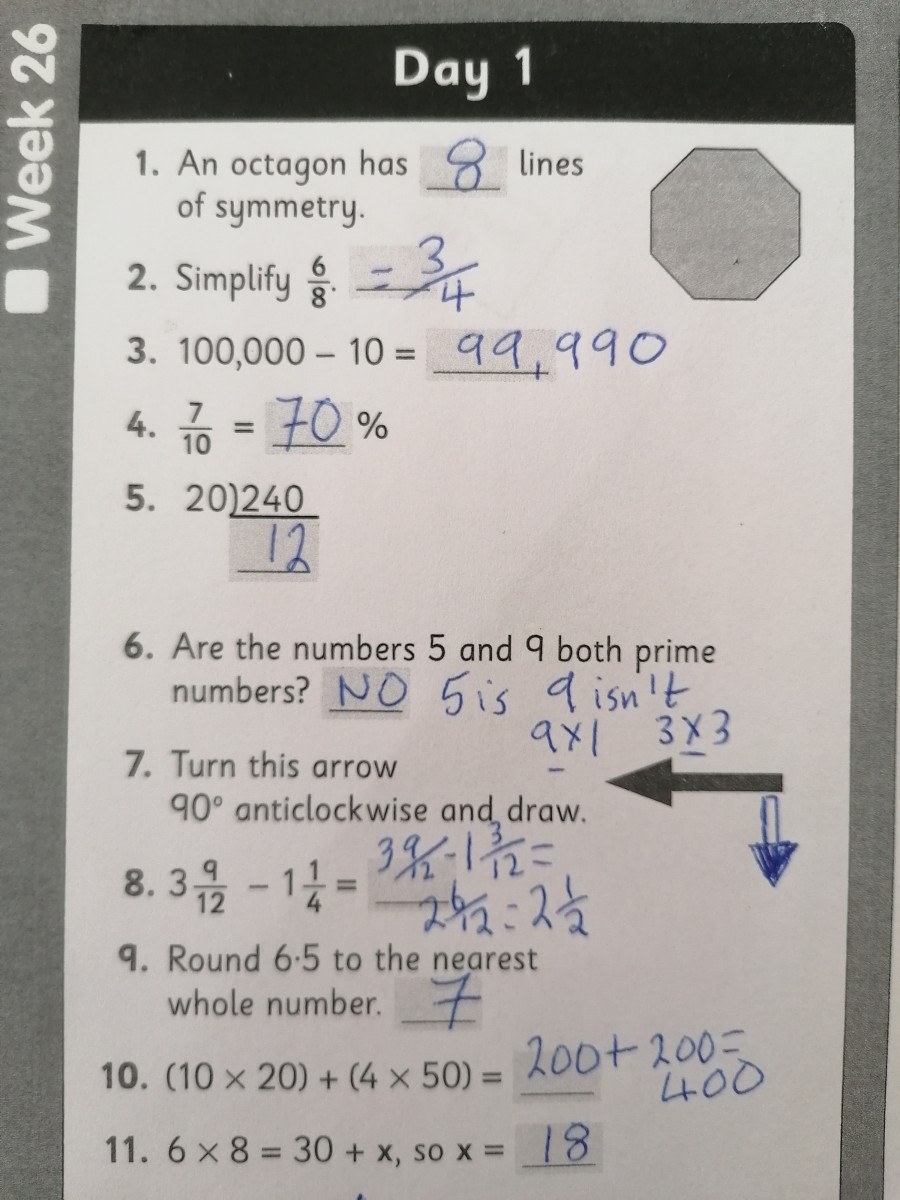 Week 26
Day 1
1. An octagon has 8 lines
of symmetry.
2. Simplify 6/8. = 3/4
3. 100,000 – 10 = 99,990
4. 7/10 = 70 %
5. 20)240
12
6. Are the numbers 5 and 9 both prime
numbers? NO 5 is 9 isn't
9x1 3x3
7. Turn this arrow
90° anticlockwise and draw.
8. 3 9/12 – 1 1/4 = 3 9/12 - 1 3/12 =
2 6/12 = 2 1/2
9. Round 6·5 to the nearest
whole number. 7
10. (10 × 20) + (4 × 50) = 200 + 200 =
400
11. 6 × 8 = 30 + x, so x = 18